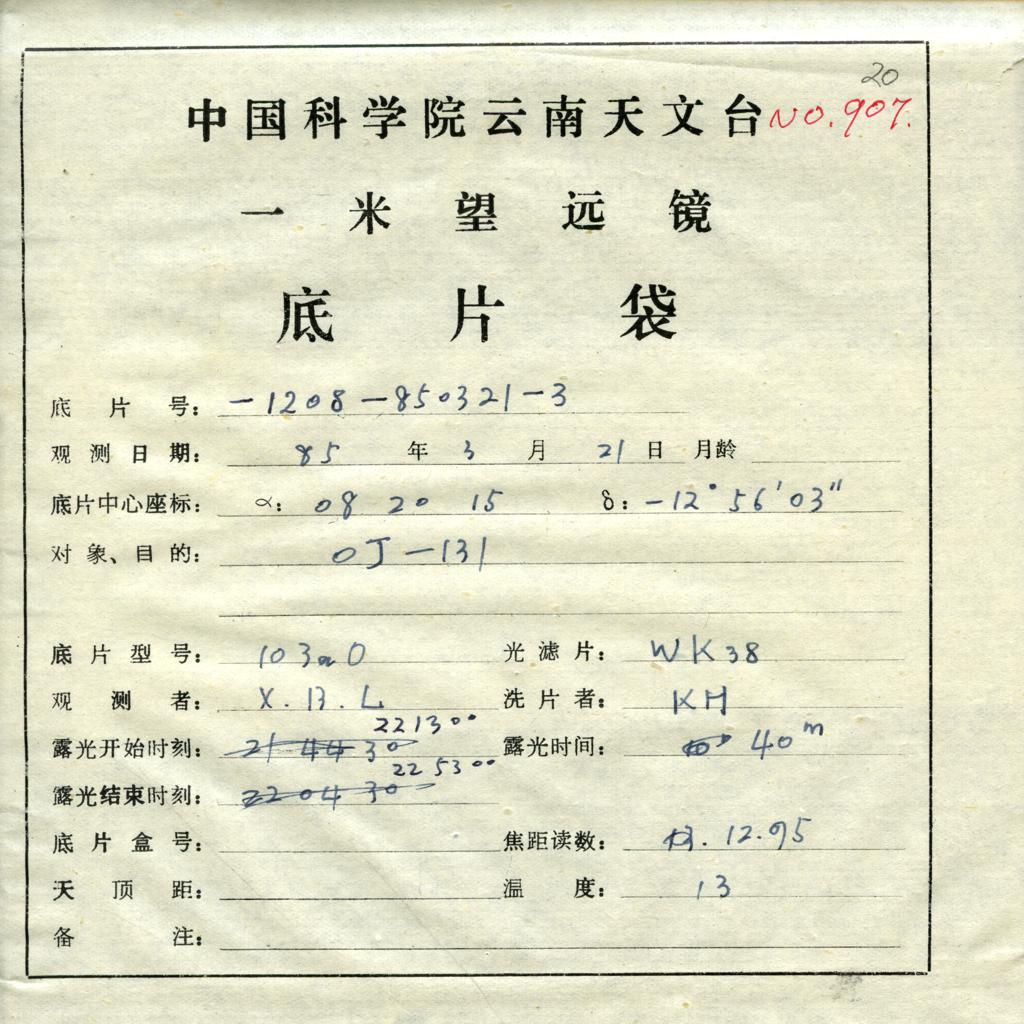 20
中国科学院云南天文台 NO.907.
一米望远镜
底片袋
底片号： -1208-850321-3
观测日期： 85 年 3 月 21 日 月龄
底片中心座标： α： 08 20 15 δ： -12° 56' 03"
对象、目的： OJ-131
底片型号： 103aO 光滤片： WK38
观测者： X.B.L 洗片者： KH
221300
露光开始时刻： 21 44 30 露光时间： 40m
225300
露光结束时刻： 220430
底片盒号： 焦距读数： 12.95
天顶距： 温度： 13
备注：